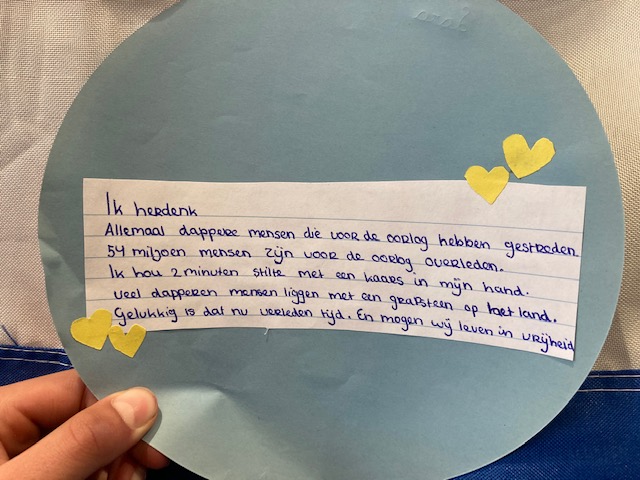 Ik herdenk
Allemaal dappere mensen die voor de oorlog hebben gestreden
54 miljoen mensen zijn voor de oorlog overleden.
Ik hou 2 minuten stilte met een kaars in mijn hand.
veel dapperen mensen liggen met een grafsteen op het land.
Gelukkig is dat nu verleden tijd. En mogen wij leven in vrijheid